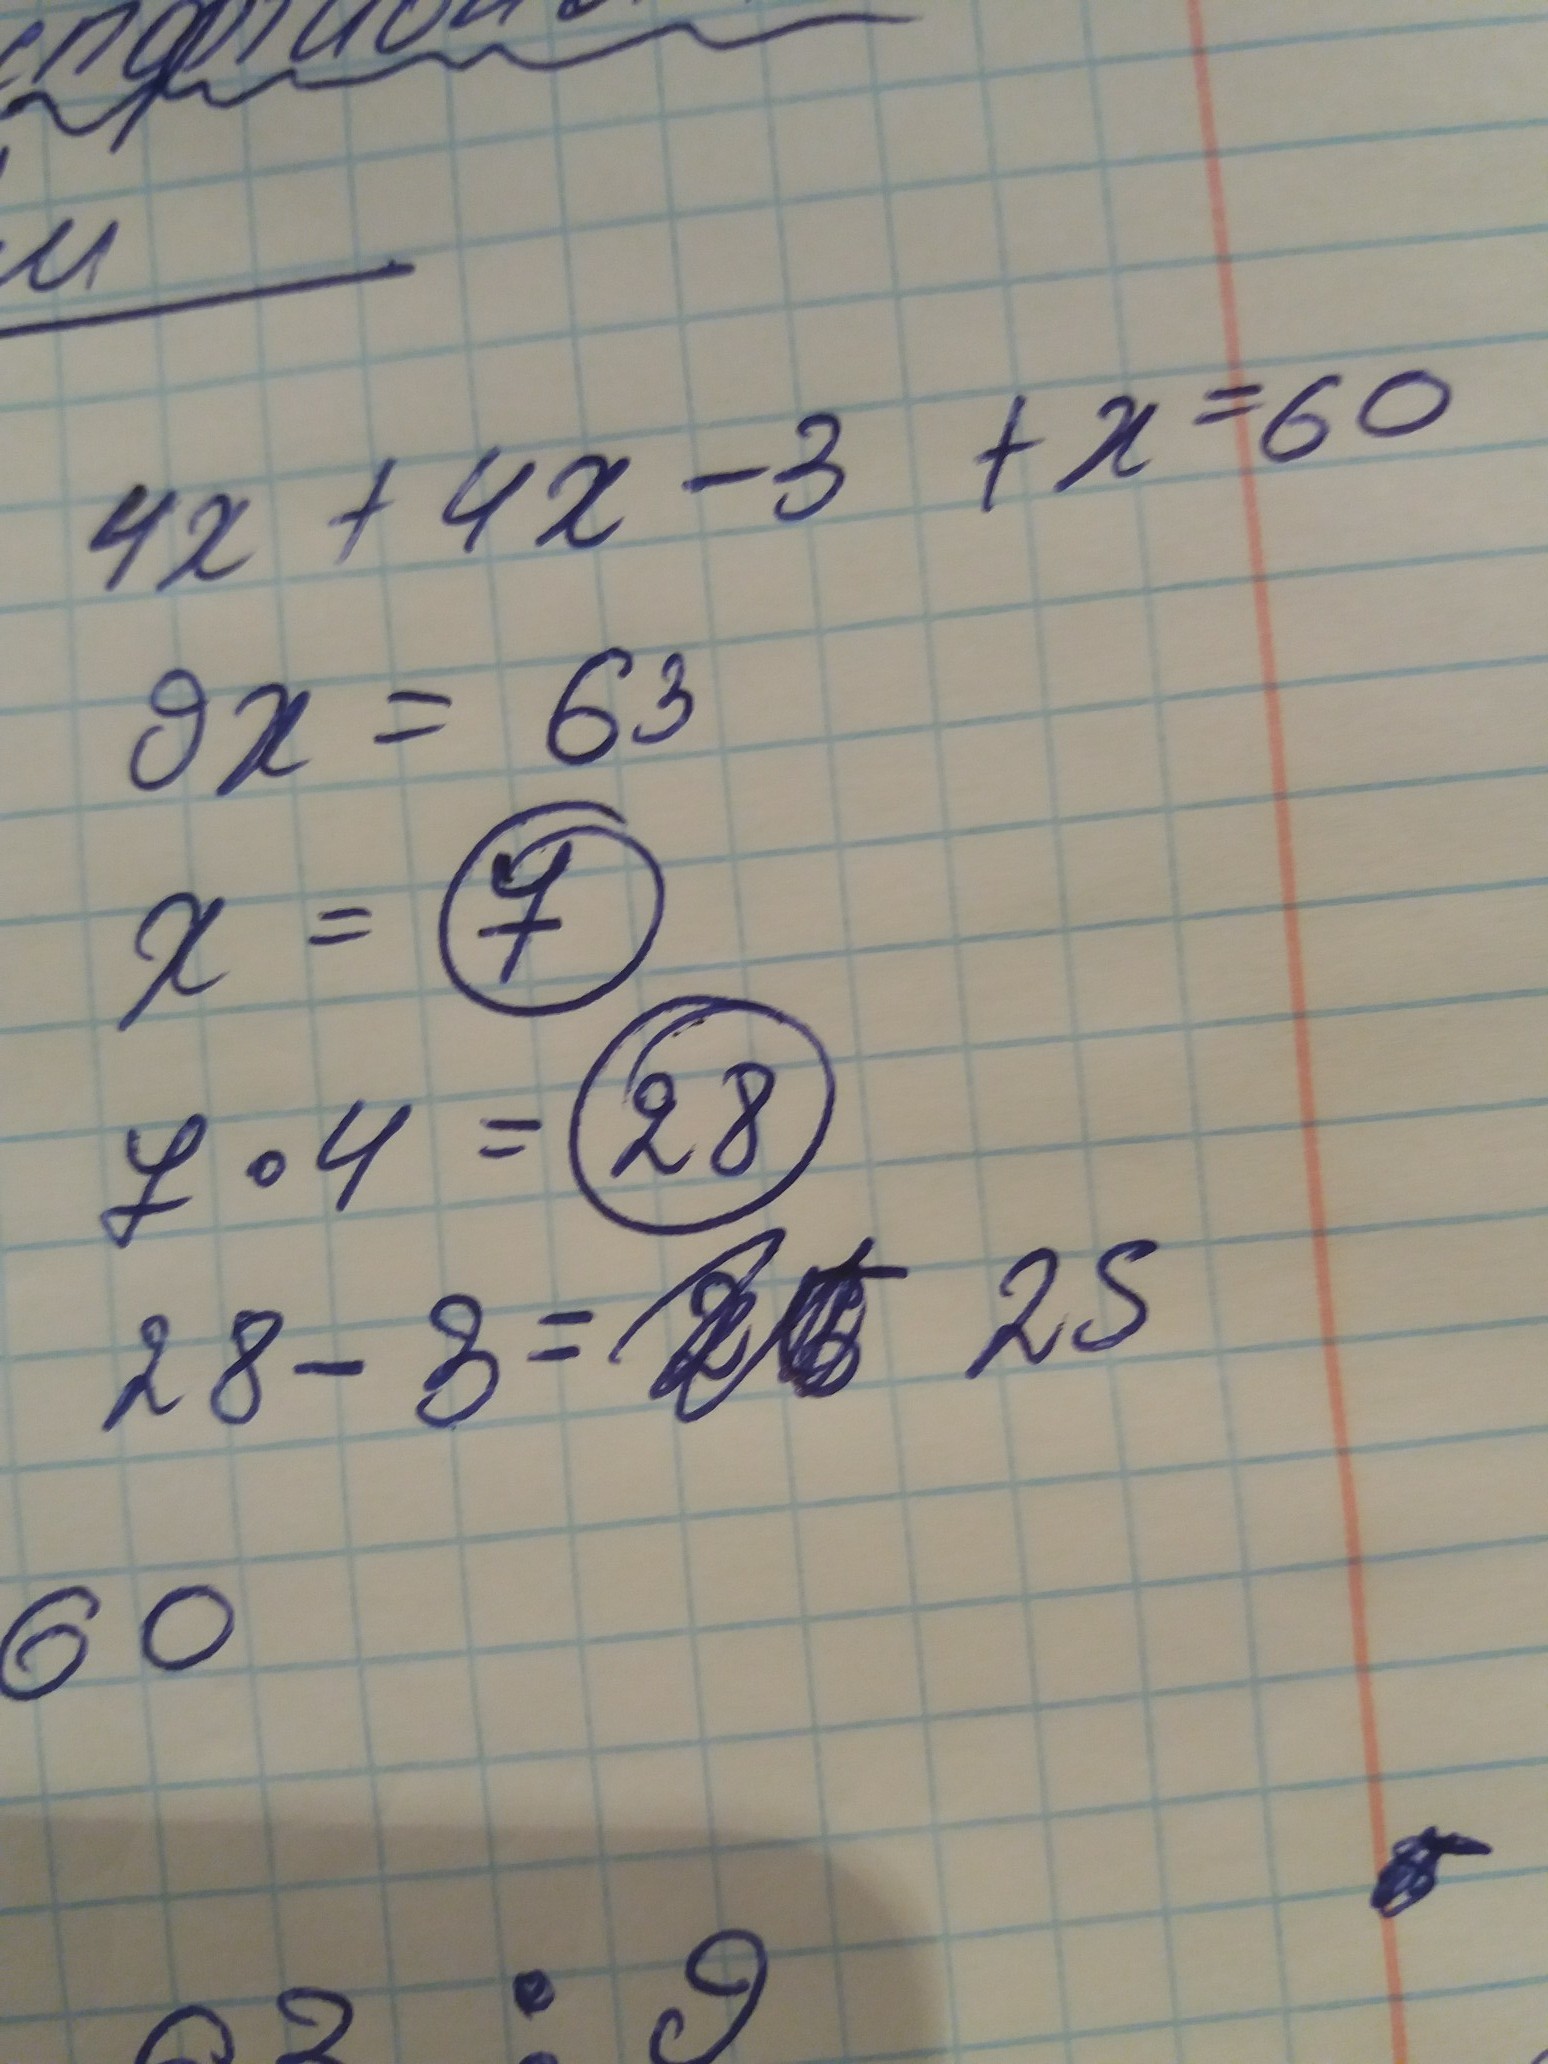 4x + 4x - 3 + x = 60
9x = 63
x = 7
7 • 4 = 28
28 - 3 = 25
60
63 : 9